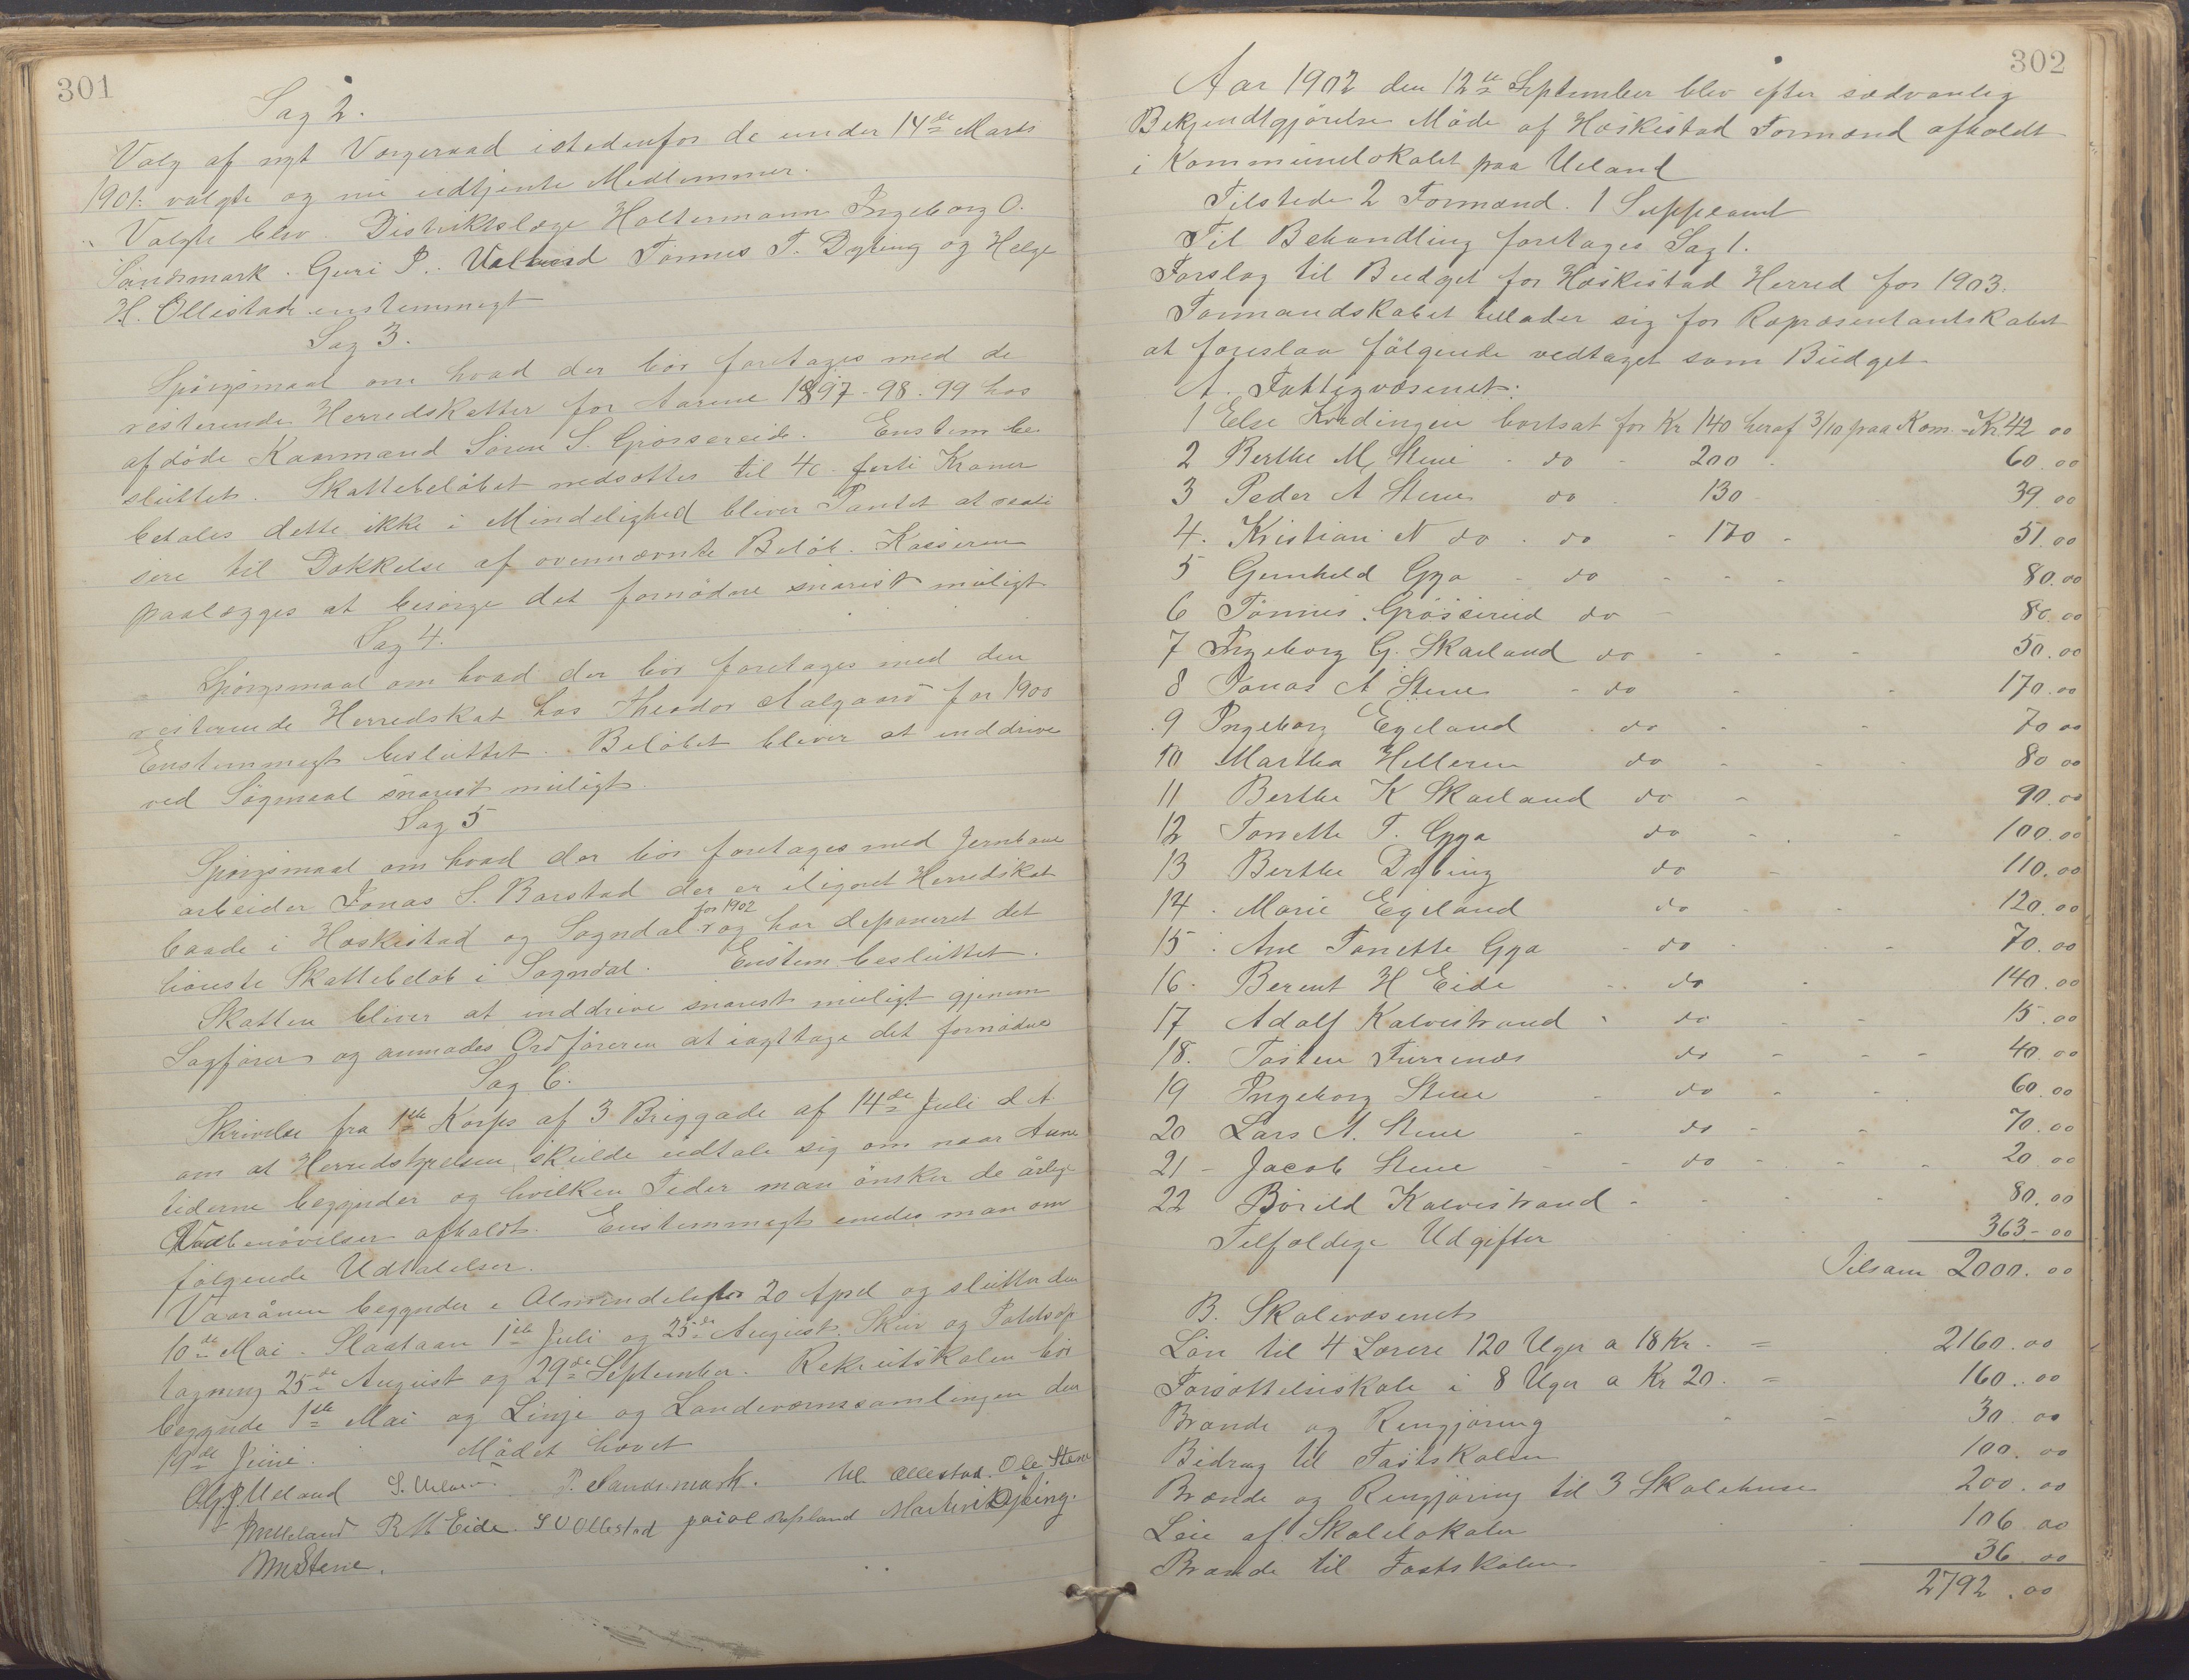 301
Sag 2.
Valg af nyt Værgeraad istedenfor de under 14de Marts
1901 valgte og nu udtjente Medlemmer.
Valgte blev. Distriktslæge Holtermann Ingeborg O.
Sandsmark. Guri P. Ualand Tønnes T. Dybing og Helge
H. Ollestad enstemmigt
Sag 3.
Spørgsmaal om hvad der bør foretages med de
resterende Herredskatter for Aarene 1897-98.99 hos
afdøde Kaarmand Søren S. Grøssereid. Enstem be
sluttet. Skattebeløbet nedsættes til 40 førti Kroner
betales dette ikke i Mindelighed bliver Pantet at reali
sere til Dækkelse af ovennævnte Beløb. Kassereren
paalægges at besørge det fornødne snarest muligt
Sag 4.
Spørgsmaal om hvad der bør foretages med den
resterende Herredskat hos Theodor Aalgaard for 1900
Enstemmigt besluttet. Beløbet bliver at inddrive
ved Søgmaal snarest muligt.
Sag 5
Spørgsmaal om hvad der bør foretages med Jernbane
arbeider Jonas S. Barstad der er ilignet Herredskat
for 1902
baade i Heskestad og Sogndal og har deponeret det
høieste Skattebeløb i Sogndal. Enstem besluttet.
Skatten bliver at inddrive snarest muligt gjenem
Sagfører og anmodes Ordføreren at iagttage det fornødne
Sag 6.
Skrivelse fra 1ste Korps af 3 Briggade af 14de Juli d A
om at Herredstyrelsen skulde udtale sig om naar Aane
tiderne begynder og hvilken Tider man ønsker de årlige
Vaabenøvelser afholdt. Enstemmigt enedes man om
følgende Udtalelser.
Vaarånen begynder i Almindelighed 20 April og slutter den
10de Mai. Slaataan 1ste Juli og 25de August. Skur og Potetsop
tagning 25de August og 29de September. Rekrutskolen bør
begynde 1ste Mai og Linje og Landeværnssamlingen den
19de Juni. Mødet hævet
Ueland S. Ueland P. Sandsmark. Ollestad. Ole Stene
Ueland R M Eide. S U Ollestad Martin Dybing.
Stene.
302
Aar 1902 den 12te September blev efter sædvanlig
Bekjendtgjørelse Møde af Heskestad Formænd afholdt
i Kommunelokalet paa Ueland
Tilstede 2 Formænd. 1 Suppleant
Til Behandling foretages Sag 1.
Forslag til Budget for Heskestad Herred for 1903.
Formandskabet tillader sig for Repræsentantskabet
at foreslaa følgende vedtaget som Budget
A. Fattigvæsenet.
1 Else Kvædingen bortsat for Kr 140 heraf 3/10 paa Kom.= Kr. 42 00
2 Berthe M, Stene - do - 200 - 60.00
3 Peder A Stene do - 130 39.00
4. Kristian N do - do - 170 - 51.00
5 Gunhild Gya - do - - - 80.00
6 Tønnes Grøssereid do - 80.00
7 Ingeborg G. Skarland do - - - 50.00
8 Jonas A Stene - do - - 170.00
9 Ingeborg Egeland - do - - 70 00
10 Martha Helleren do - - - 80 00
11 Berthe K Skarland do - 90.00
12 Tonette T. Gya do - - - 100.00
13 Berthe Dybing do - 110.00
14. Marie Egeland do - - 120.00
15. Ane Tonette Gya - do - - - 70.00
16. Berent H Eide - do - 140.00
17 Adolf Kalvestrand - do - - 15.00
18. Tosten Furrenes do - - - 40.00
19 Ingeborg Stene - do - - 60.00
20 Lars A. Stene - do - - 70.00
21 - Jacob Stene - - do - - - 20.00
22 Børild Kalvestrand - - - - 80.00
Tilfældige Udgifter 363-00
Tilsam 2000.00
B. Skolevæsenet
Løn til 4 Lærere 120 Uger a 18 Kr. = 2160.00
Forsøttelsesskole i 8 Uger a Kr 20. = 160.00
Brænde og Rengjøring - - 30.00
Bidrag til Fastskolen 100.00
Brænde og Rengjøring til 3 Skolehuse 200.00
Leie af Skolelokaler 106 00
Brænde til Fastskolen - 36.00
2792.00